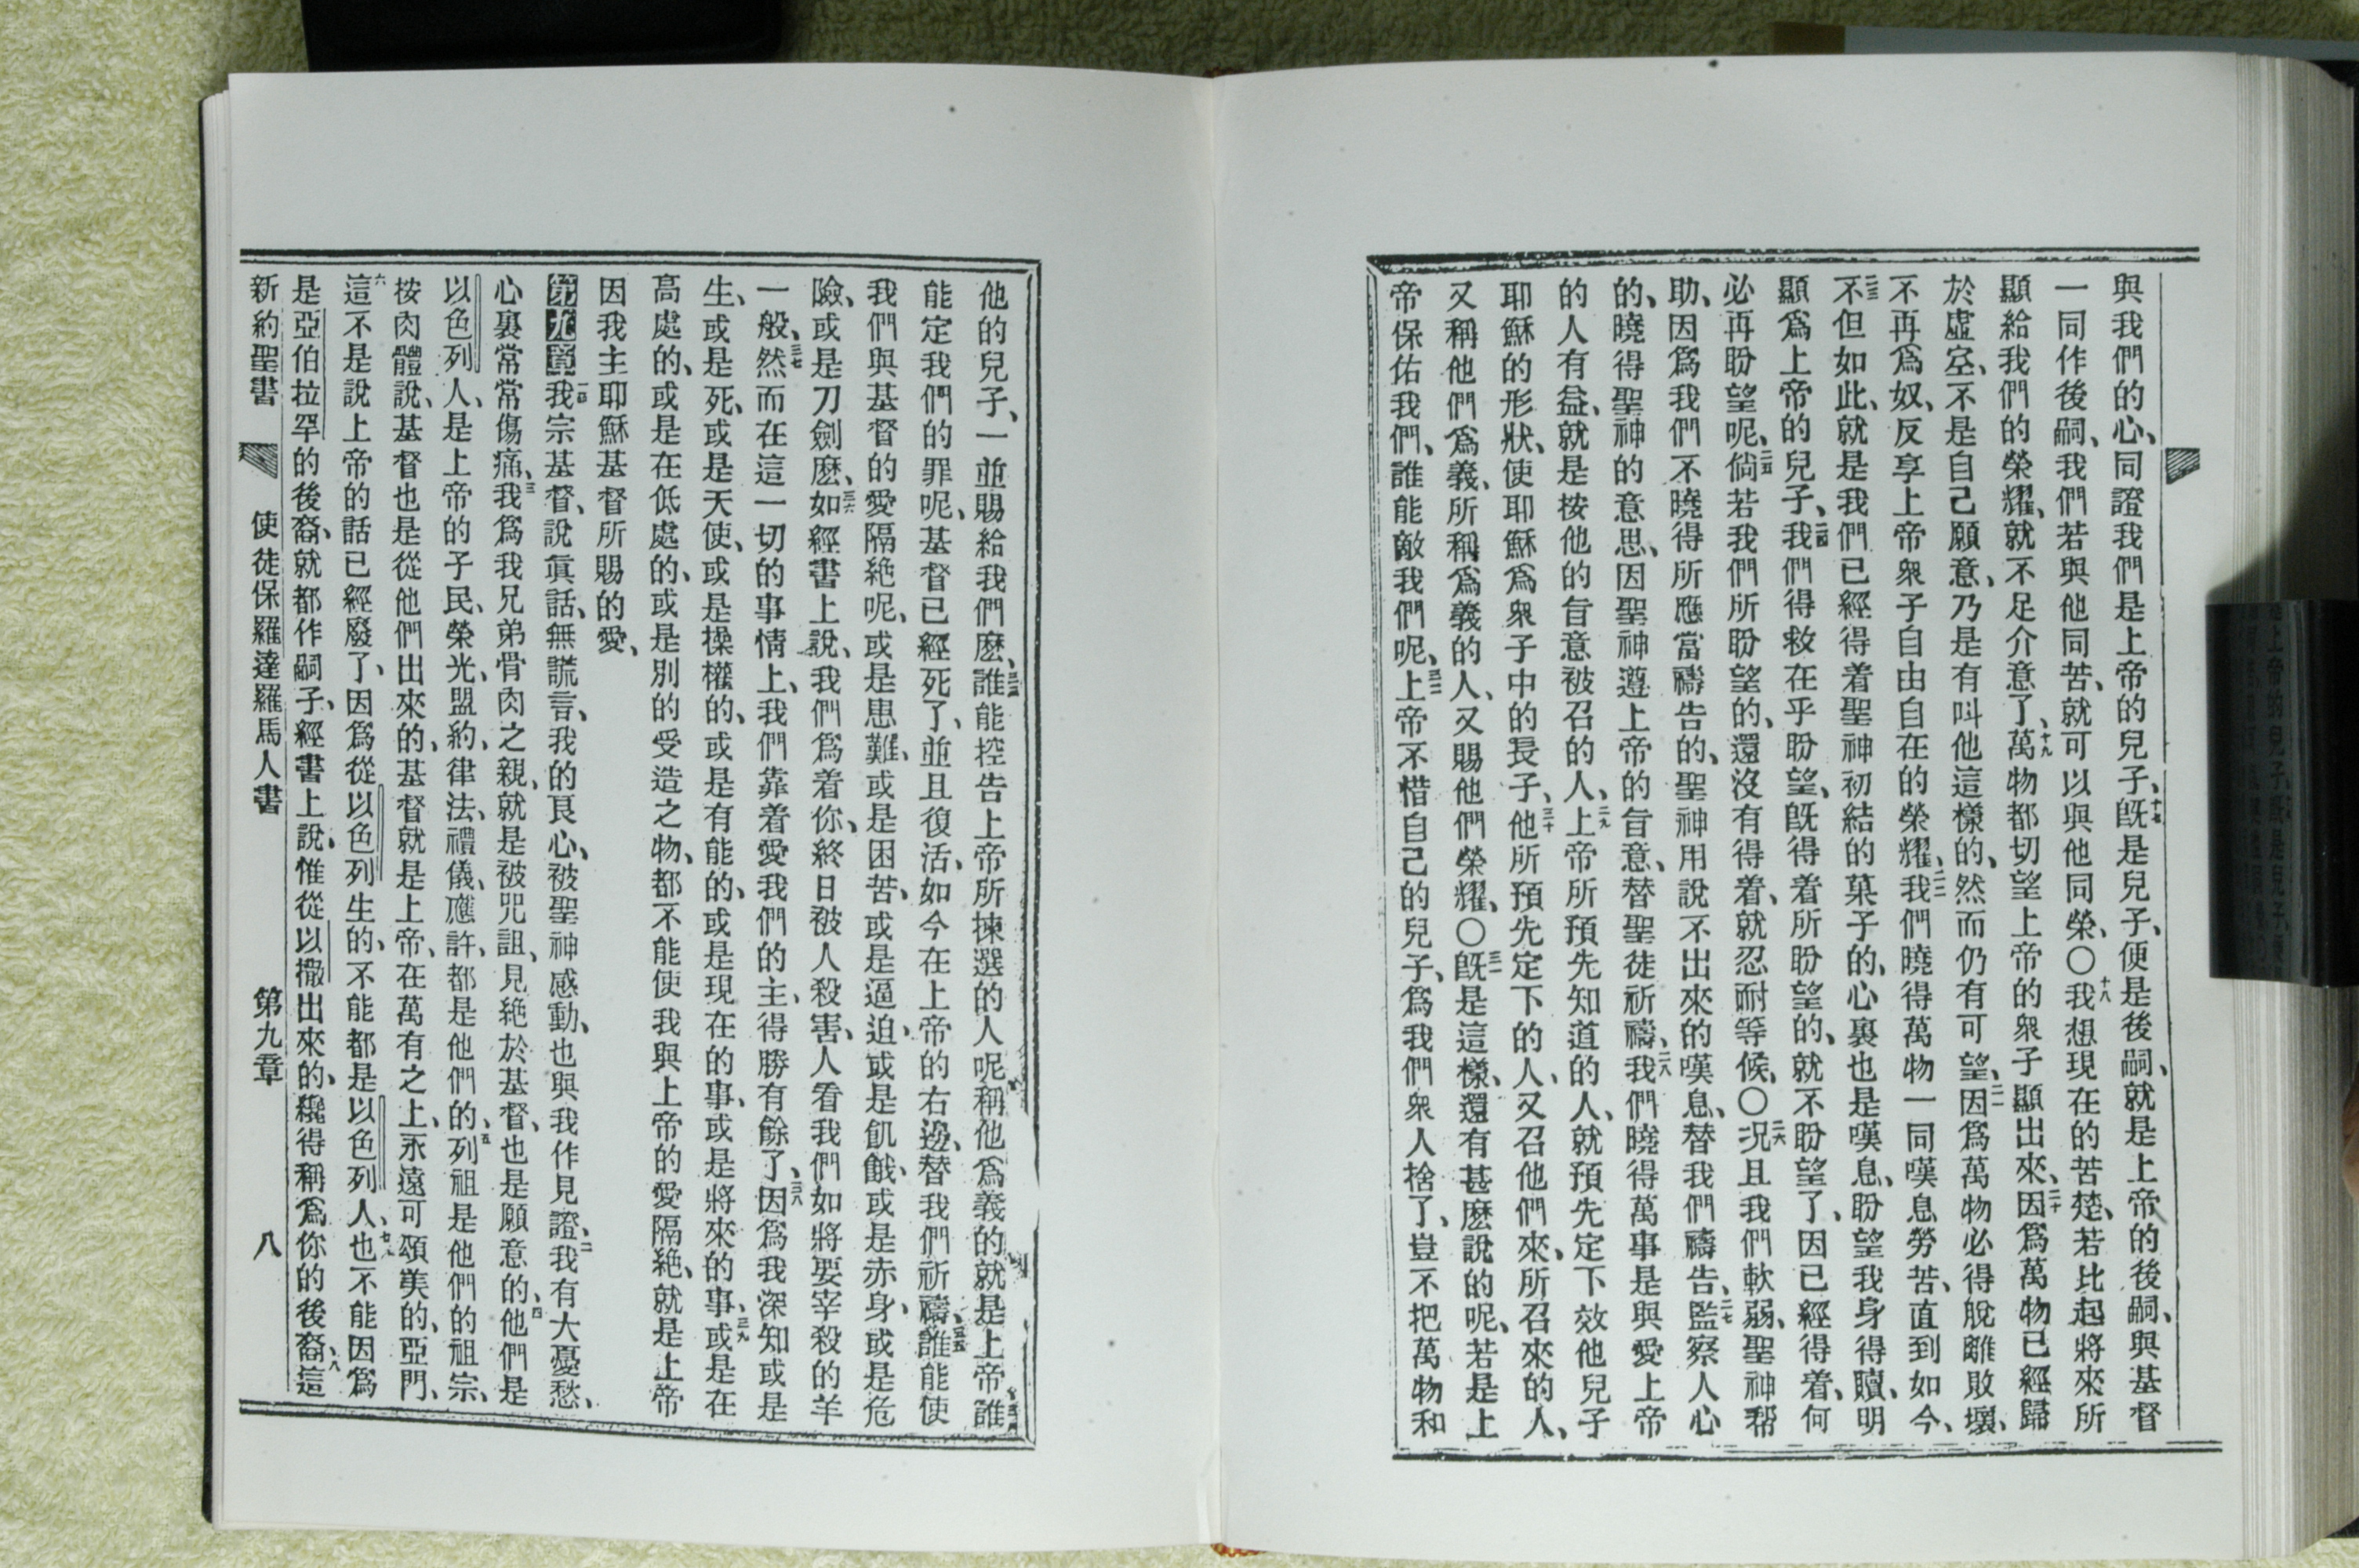 與我們的心、同證我們是上帝的兒子、十七既是兒子、便是後嗣、就是上帝的後嗣、與基督
一同作後嗣、我們若與他同苦、就可以與他同榮、〇十八我想現在的苦楚、若比起將來所
顯給我們的榮耀、就不足介意了、十九萬物都切望上帝的衆子顯出來、二十因爲萬物已經歸
於虛空、不是自己願意、乃是有叫他這樣的、然而仍有可望、二一因爲萬物必得脫離敗壞、
不再爲奴、反享上帝衆子自由自在的榮耀、二二我們曉得萬物一同嘆息勞苦、直到如今、
二三不但如此、就是我們已經得着聖神初結的菓子的、心裏也是嘆息、盼望我身得贖、明
顯爲上帝的兒子、二四我們得救在乎盼望、既得着所盼望的、就不盼望了、因已經得着、何
必再盼望呢、二五倘若我們所盼望的、還沒有得着、就忍耐等候、〇二六況且我們軟弱、聖神帮
助、因爲我們不曉得所應當禱告的、聖神用說不出來的嘆息、替我們禱告、二七監察人心
的、曉得聖神的意思、因聖神遵上帝的旨意、替聖徒祈禱、二八我們曉得萬事是與愛上帝
的人有益、就是按他的旨意被召的人、二九上帝所預先知道的人、就預先定下效他兒子
耶穌的形狀、使耶穌爲衆子中的長子、三十他所預先定下的人、又召他們來、所召來的人、
又稱他們爲義、所稱爲義的人、又賜他們榮耀、〇三一既是這樣、還有甚麽說的呢、若是上
帝保佑我們、誰能敵我們呢、三二上帝不惜自己的兒子、爲我們衆人捨了、豈不把萬物和
他的兒子、一並賜給我們麽、三三誰能控告上帝所揀選的人呢稱他爲義的就是上帝三四誰
能定我們的罪呢、基督已經死了、並且復活、如今在上帝的右邊、替我們祈禱、三五誰能使
我們與基督的愛隔絶呢、或是患難、或是困苦、或是逼迫、或是飢餓、或是赤身、或是危
險、或是刀劍麽、三六如經書上說、我們爲着你、終日被人殺害、人看我們如將要宰殺的羊
一般、三七然而在這一切的事情上、我們靠着愛我們的主、得勝有餘了、三八因爲我深知或是
生、或是死、或是天使、或是操權的、或是有能的、或是現在的事、或是將來的事、三九或是在
高處的、或是在低處的、或是別的受造之物、都不能使我與上帝的愛隔絶、就是上帝
因我主耶穌基督所賜的愛、
第九章一我宗基督、說眞話、無謊言、我的良心、被聖神感動、也與我作見證、二我有大憂愁、
心裏常常傷痛、三我爲我兄弟骨肉之親、就是被咒詛、見絶於基督、也是願意的、四他們是
以色列人、是上帝的子民、榮光、盟約、律法、禮儀、應許、都是他們的、五列祖是他們的祖宗、
按肉體說、基督也是從他們出來的、基督就是上帝、在萬有之上、永遠可頌美的、亞門、
六這不是說上帝的話已經廢了、因爲從以色列生的、不能都是以色列人、七也不能因爲
是亞伯拉罕的後裔、就都作嗣子、經書上說、惟從以撒出來的、纔得稱爲你的後裔、八這
新約聖書　使徒保羅達羅馬人書　第九章　八